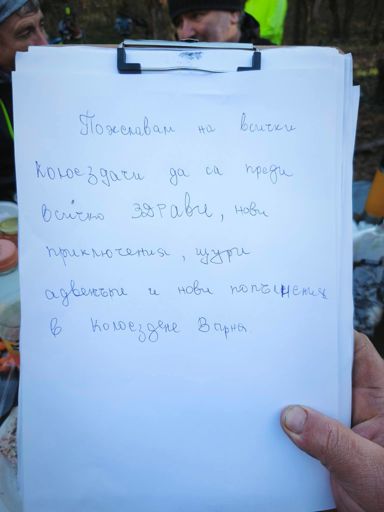 Пожелавам на всички
колоездачи да са преди
всичко ЗДРАВИ, нови
приключения, щури
адвенчъри и нови попълнения
в Колоездене Варна.